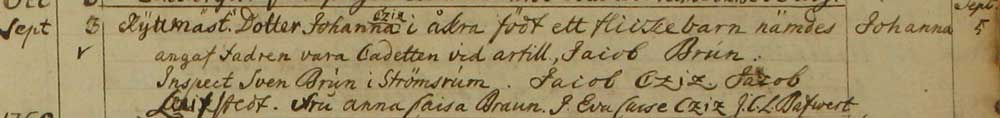 Sept.
Sept 3 Ryttmäst. Dotter Johanna Cziz i åkra född ett flickebarn nämdes Johanna 5
angaf Fadren vara Cadetten vid artill., Jacob Brun.
Inspect Sven Brun i Strömsrum. Jacob Cziz. Jacob
stedt. Fru anna Caisa Braun. J. Eva Caise Cziz J. C. L.